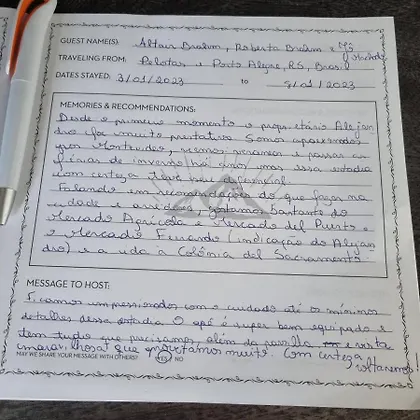 GUEST NAME(S): Altair Brahm, Roberta Brahm e
TRAVELING FROM: Pelotas e Porto Alegre, RS, Brasil
DATES STAYED: 3/01/2023 to 9/01/2023
MEMORIES & RECOMMENDATIONS:
Desde o primeiro momento o proprietário Alejan
dro foi muito prestativo Somos apaixonados
por Montevideo, viemos passar as
férias de inverno há anos mas essa estadia
com certeza teve seu diferencial.
Falando em recomendações do que fazer na
cidade e arredores, gostamos bastante do
Mercado Agrícola e Mercado del Puerto e
o Mercado Ferrando (indicação do Alejan
dro) e a ida à Colônia del Sacramento
MESSAGE TO HOST:
Ficamos impressionados com o cuidado até os mínimos
detalhes dessa estadia. O apê é super bem equipado e
tem tudo que precisamos além da parrilla e vista
maravilhosa que aproveitamos muito. Com certeza
voltaremos
MAY WE SHARE YOUR MESSAGE WITH OTHERS? YES NO